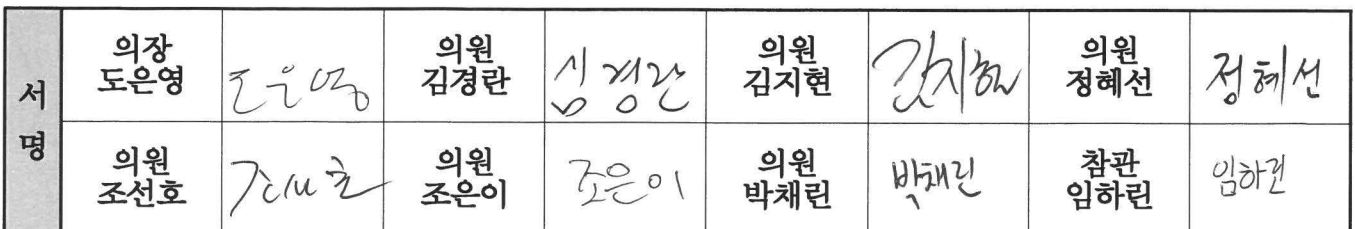 서명
의장 도은영 도은영
의원 김경란 김경란
의원 김지현 김지현
의원 정혜선 정혜선
의원 조선호 조선호
의원 조은이 조은이
의원 박채린 박채린
참관 임하린 임하린